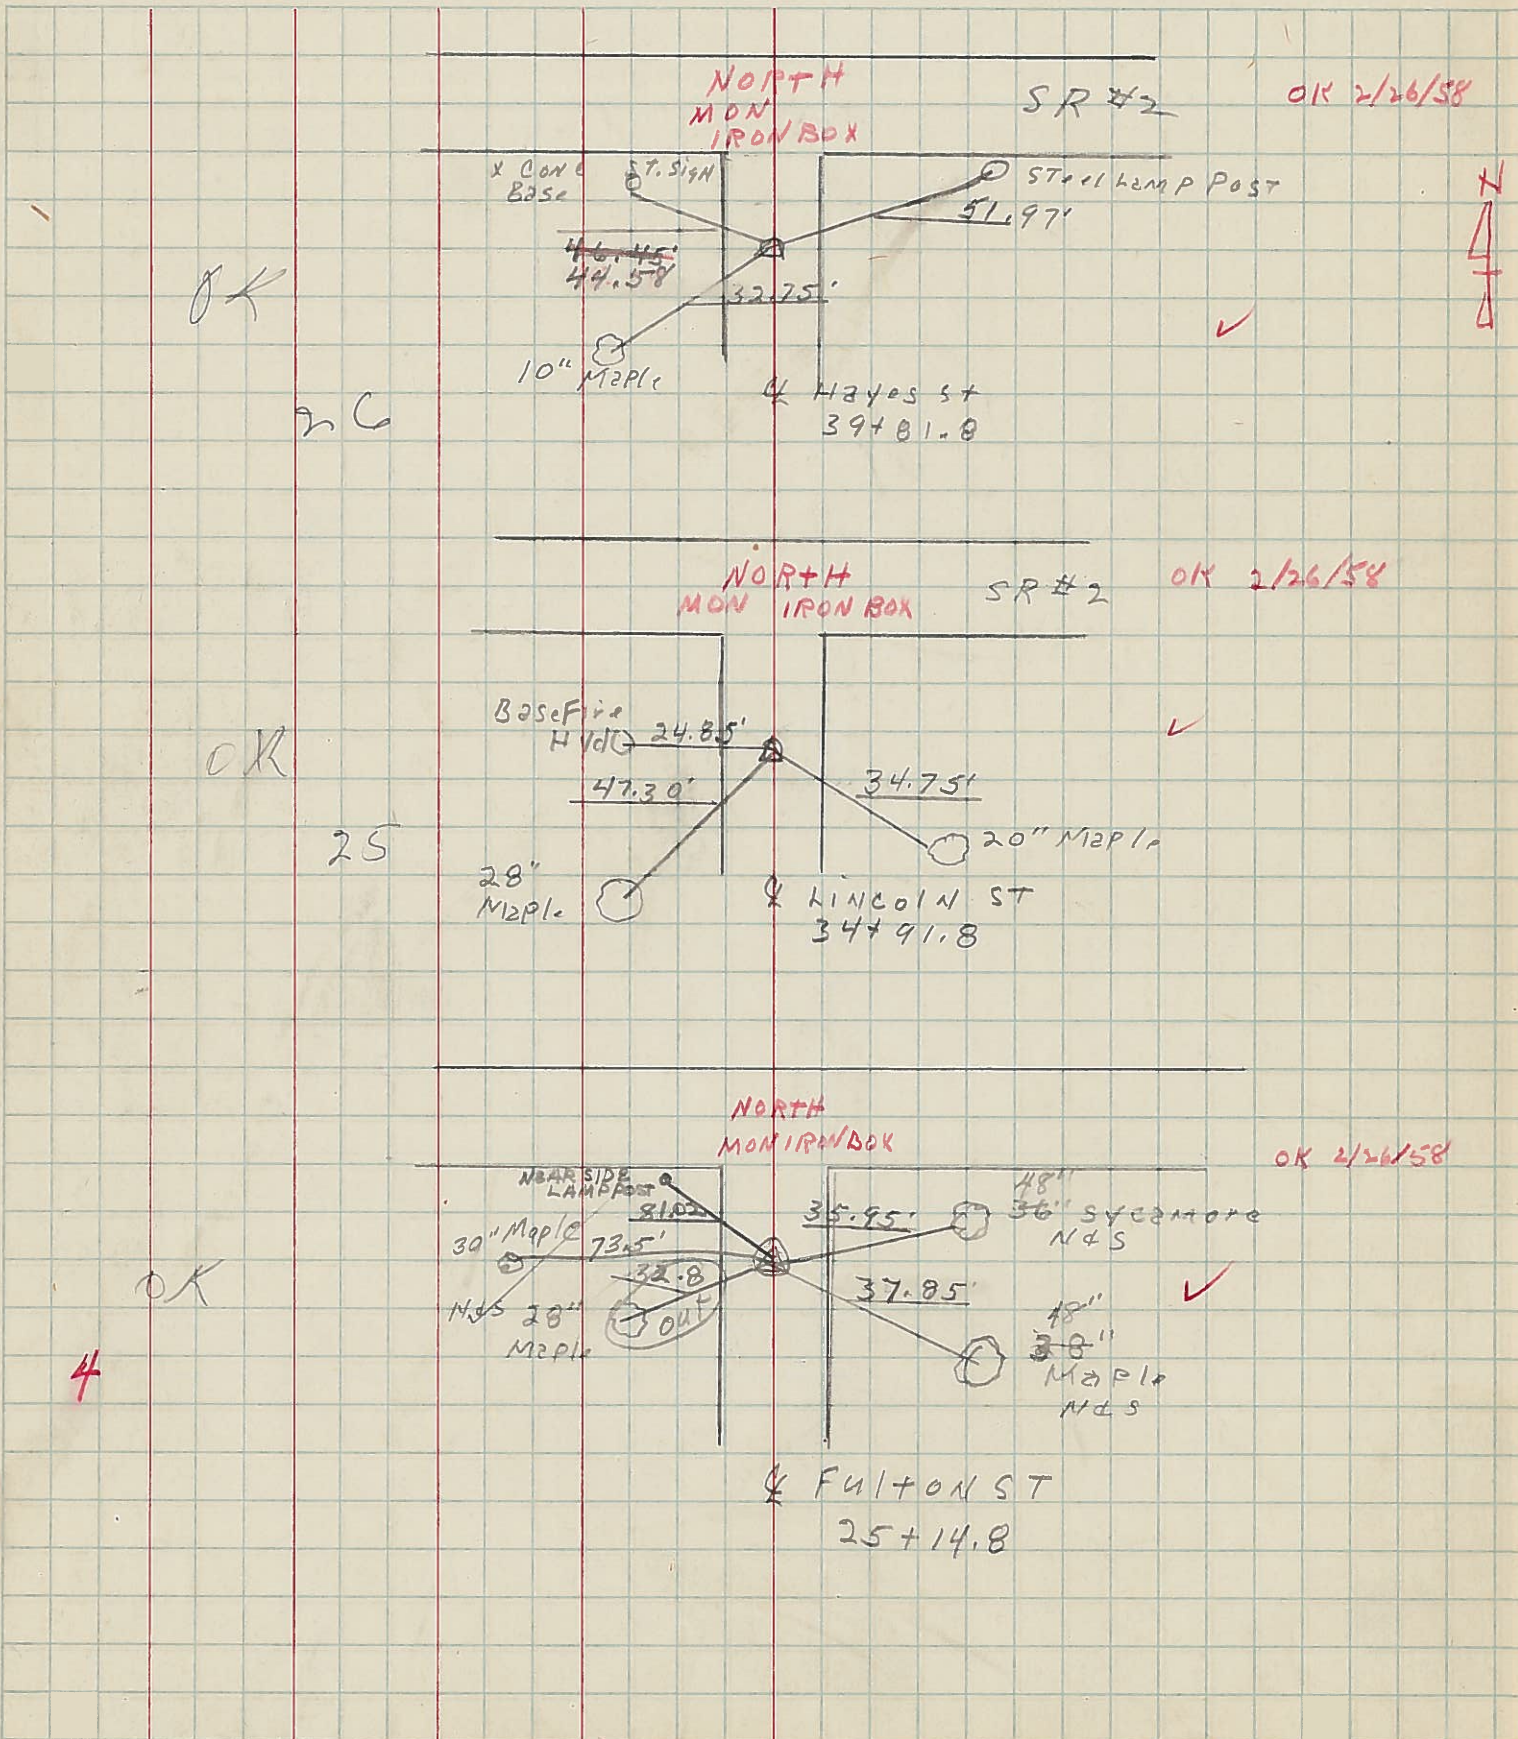 NORTH
MON
IRON BOX
SR #2
OK 2/26/58
N
X CONC
Base
ST. SIGN
STeel Lamp Post
51.97'
46.45'
44.58
32.75'
10" Maple
OK
26
℄ Hayes St
39+81.8
NORTH
MON IRON BOX
SR #2
OK 2/26/58
Base Fire
Hyd
24.85'
47.30'
34.75'
20" Maple
28"
Maple
OK
25
℄ LINCOLN ST
34+91.8
NORTH
MON IRON BOX
OK 2/26/58
NEAR SIDE
LAMP POST
81.02
35.95'
48"
36" Sycamore
N&S
30" Maple
73.5'
32.8
out
N&S
28"
Maple
37.85'
48"
38"
Maple
N&S
OK
4
℄ Fulton ST
25+14.8